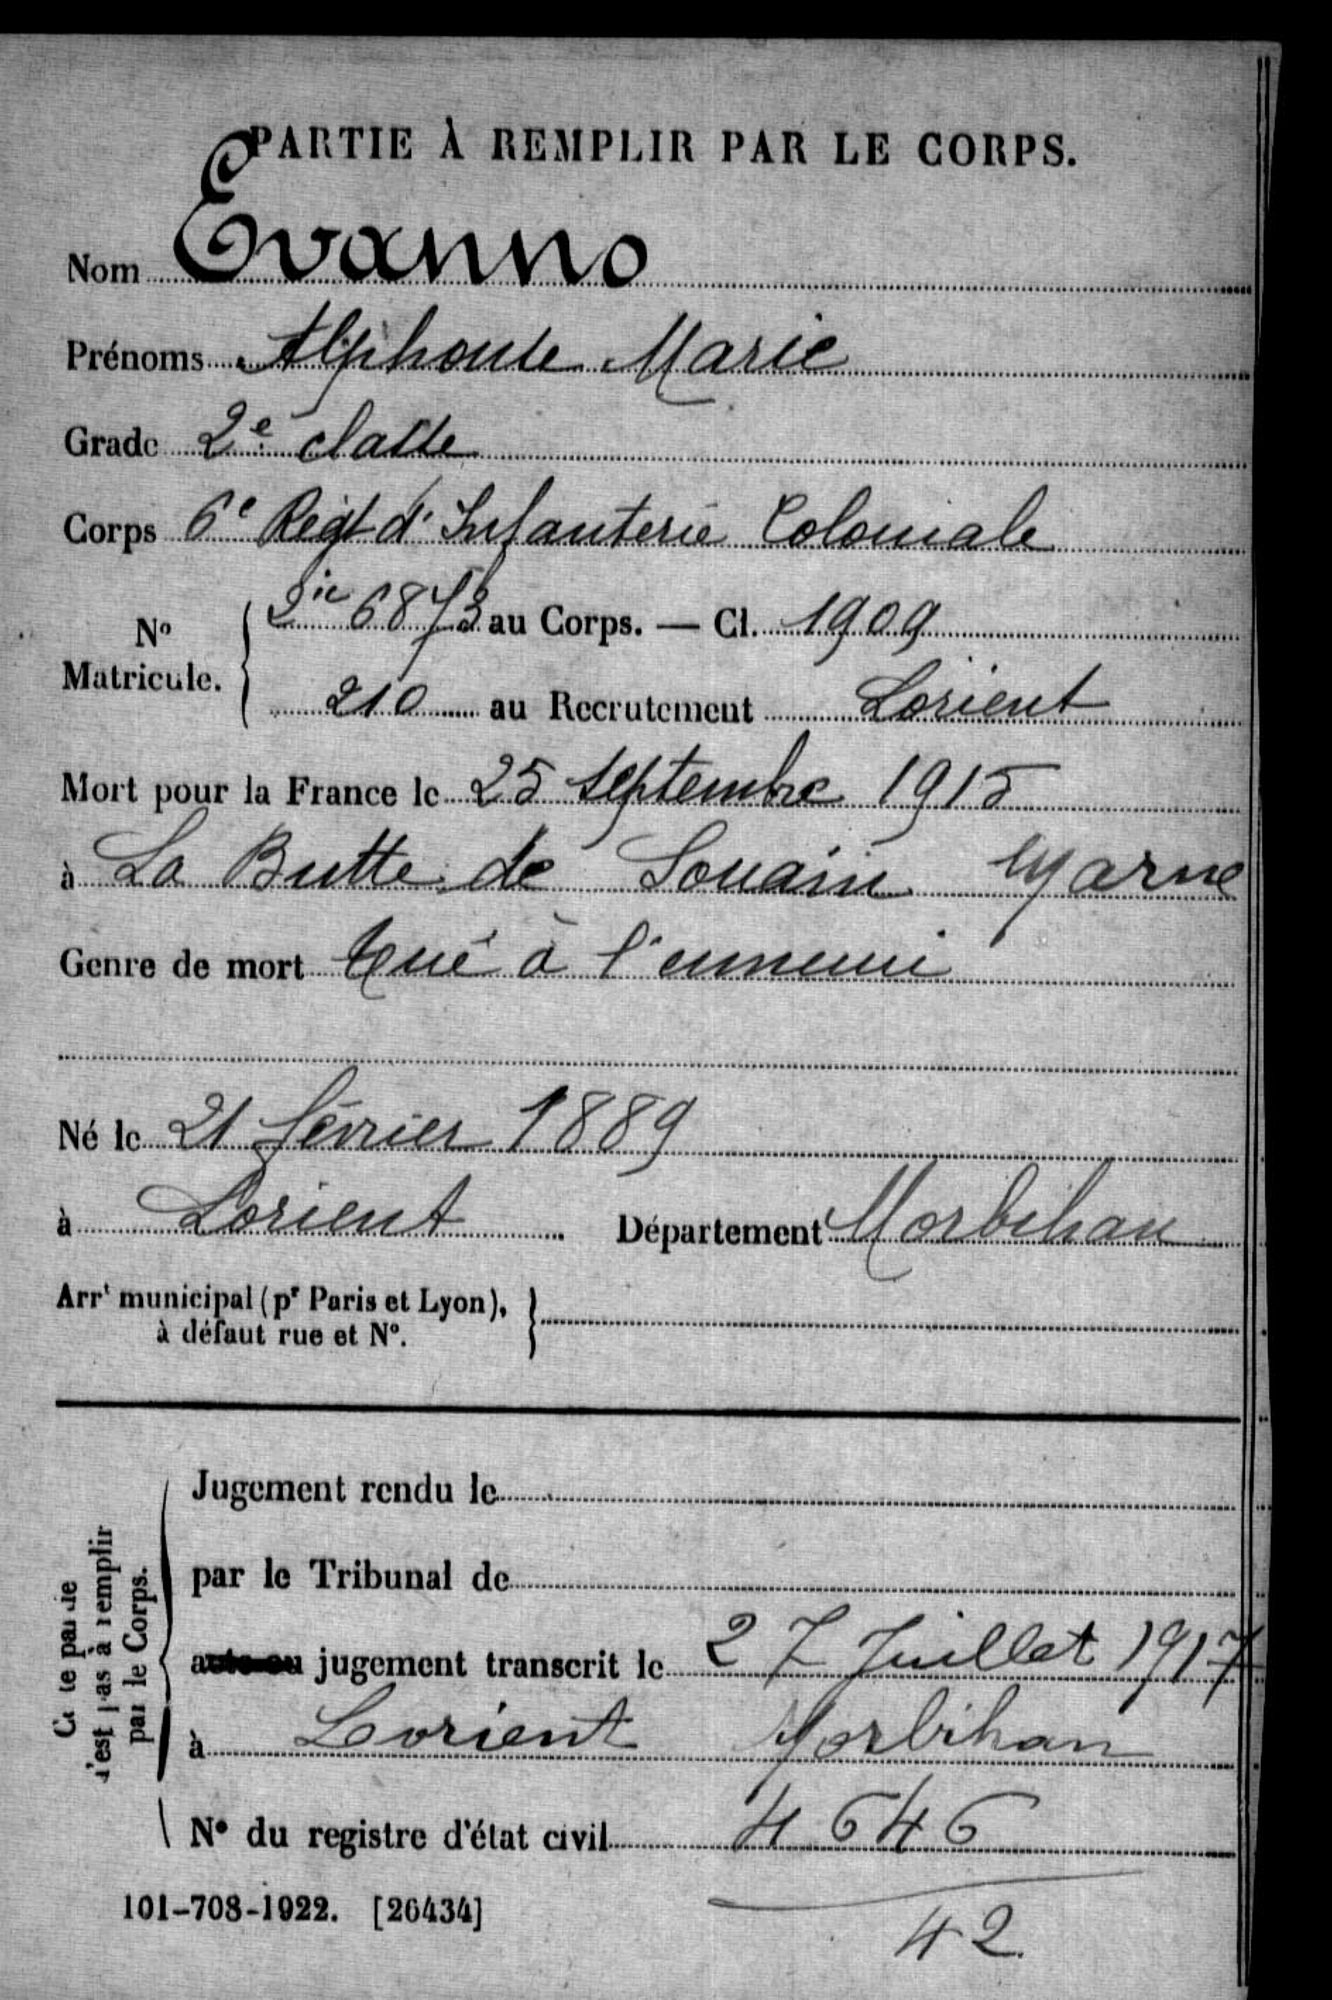 PARTIE À REMPLIR PAR LE CORPS.
Nom Evanno
Prénoms Alphonse Marie
Grade 2e classe
Corps 6e Regt d'Infanterie Coloniale
No Matricule. 6873 au Corps. — Cl. 1909
210 au Recrutement Lorient
Mort pour la France le 25 septembre 1915
à La Butte de Souain Marne
Genre de mort tué à l'ennemi
Né le 21 février 1889
à Lorient Département Morbihan
Arrt municipal (pr Paris et Lyon),
à défaut rue et No.
Cette partie
n'est pas à remplir
par le Corps.
Jugement rendu le
par le Tribunal de
acte ou jugement transcrit le 27 Juillet 1917
à Lorient Morbihan
No du registre d'état civil 4646
42
101-708-1922. [26434]